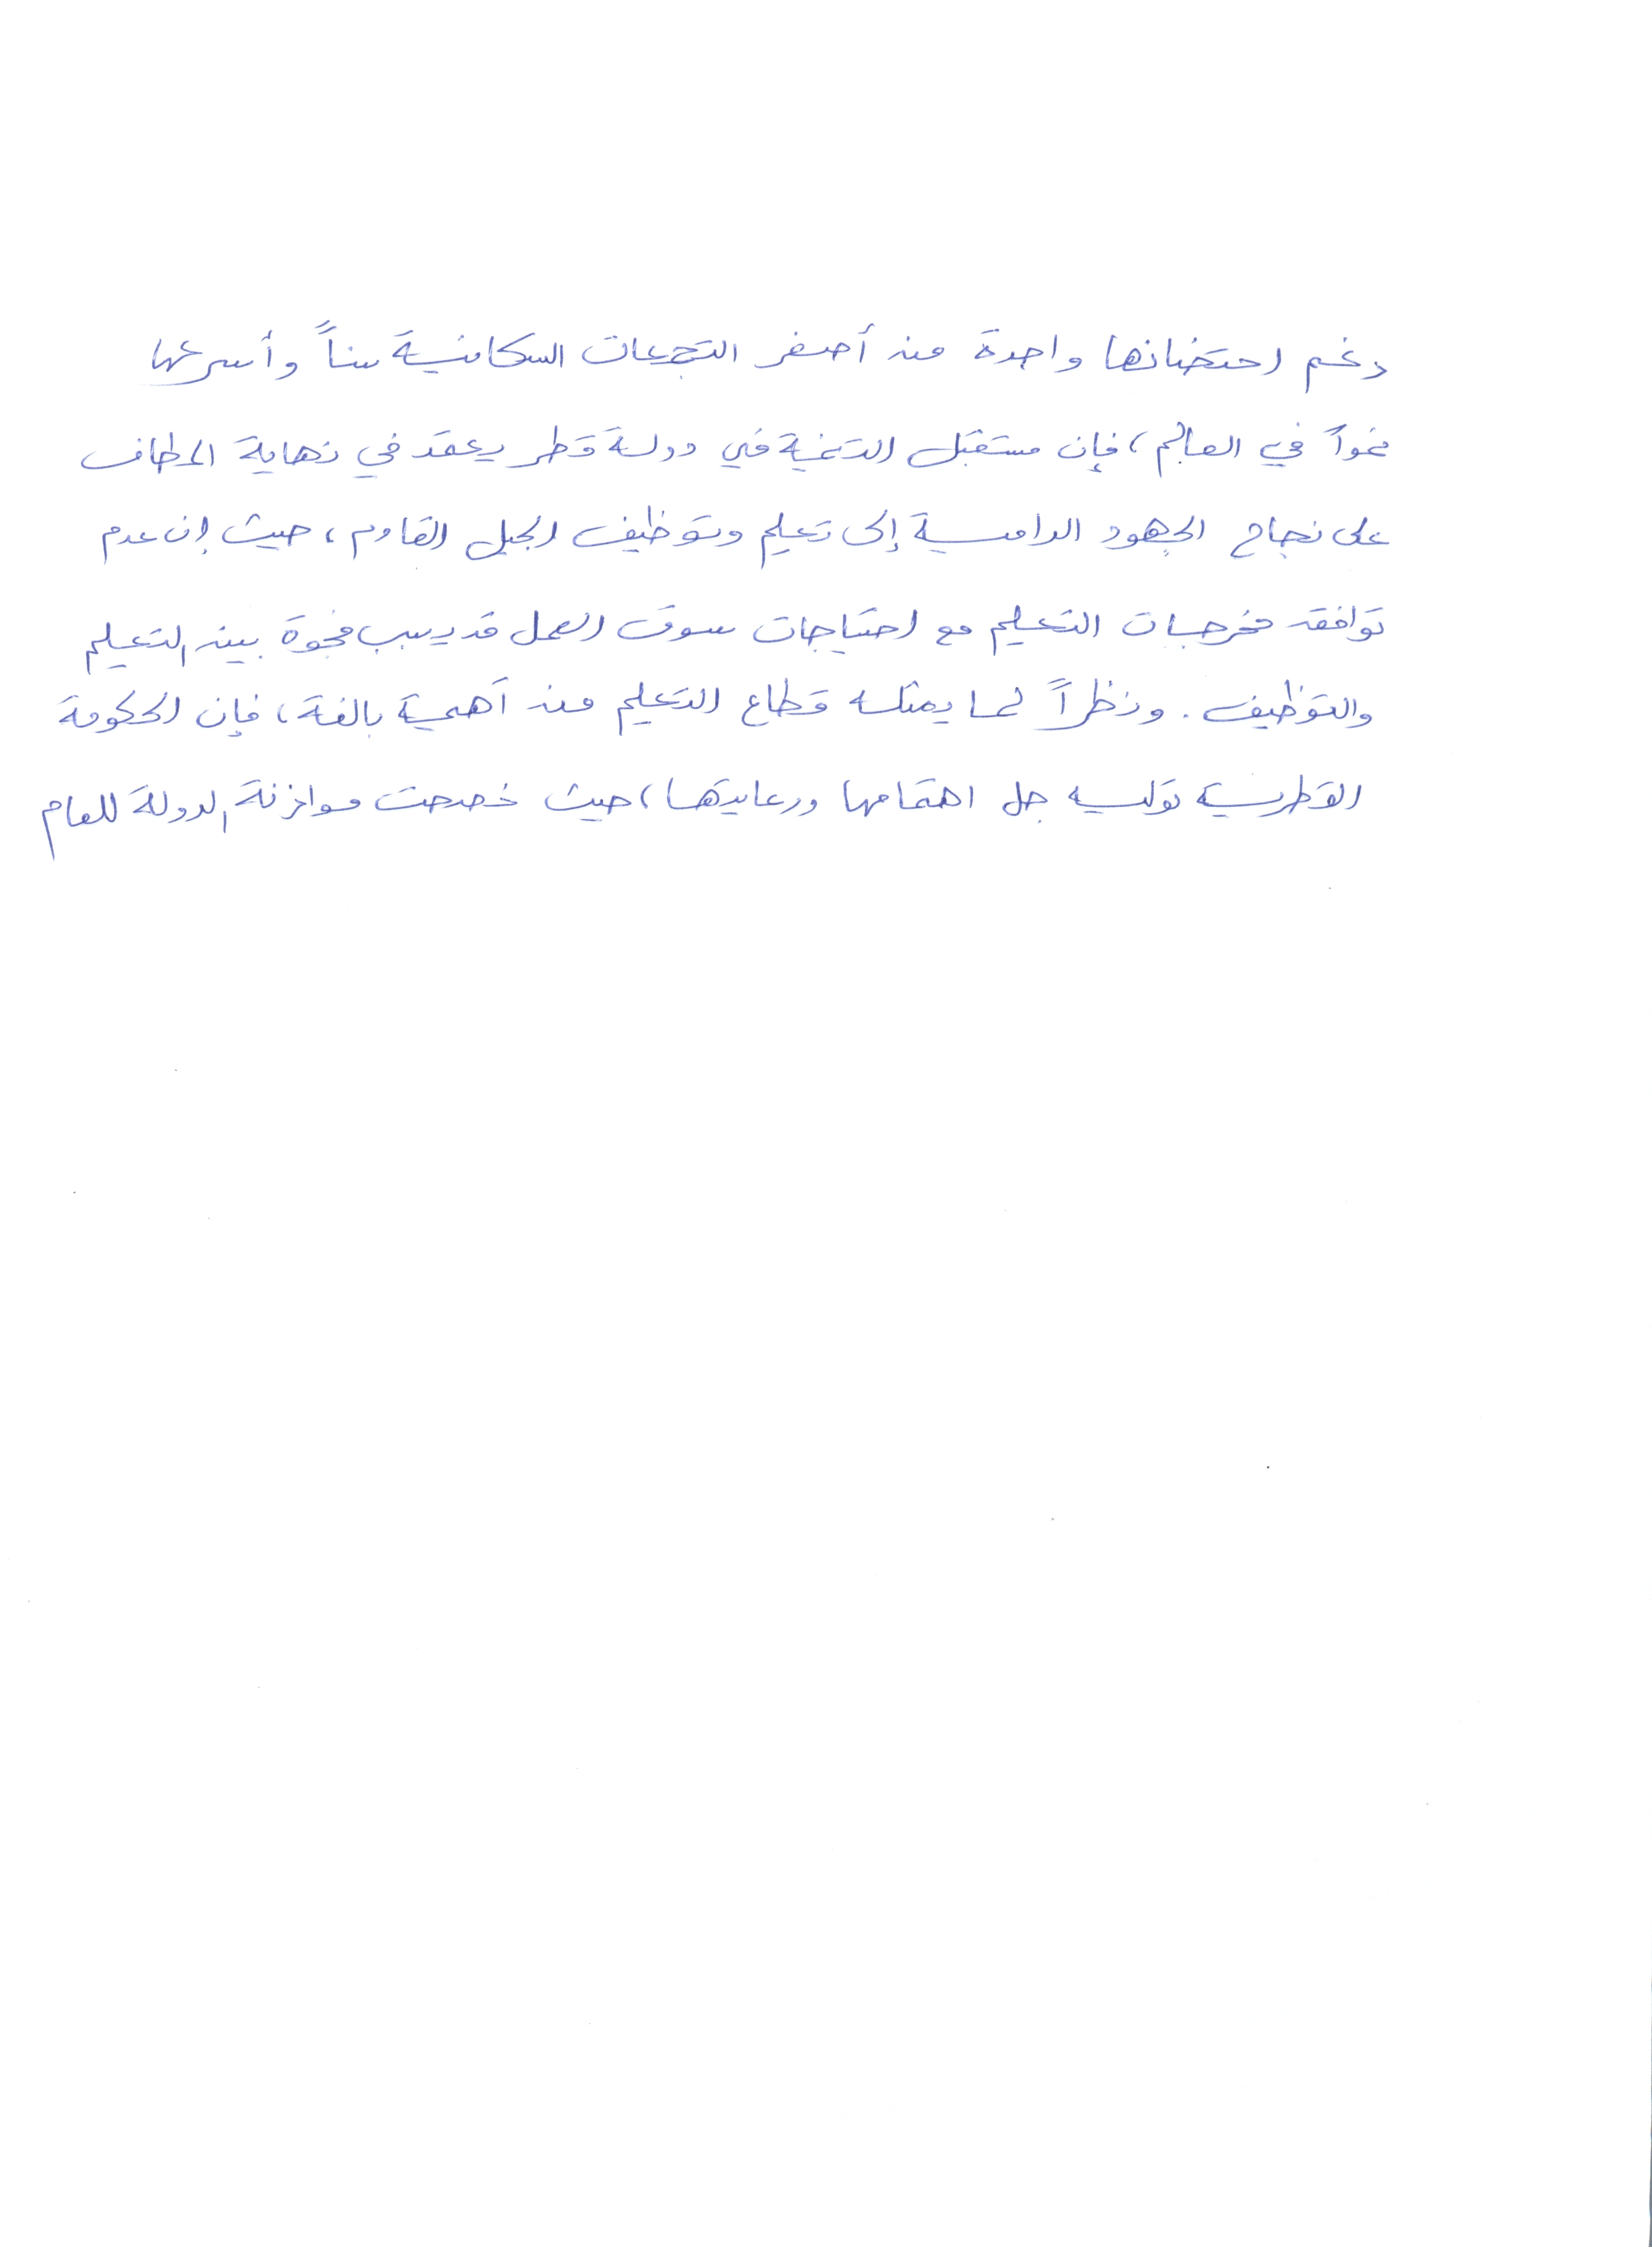 رغم احتضانها واحدة من أصغر التجمعات السكانية سناً وأسرعها
نمواً في العالم، فإن مستقبل التنمية في دولة قطر يعتمد في نهاية المطاف
على نجاح الجهود الرامية إلى تعليم وتوظيف الجيل القادم، حيث إن عدم
توافق مخرجات التعليم مع احتياجات سوق العمل قد يسبب فجوة بين التعليم
والتوظيف. ونظراً لما يمثله قطاع التعليم من أهمية بالغة، فإن الحكومة
القطرية توليه جل اهتمامها ورعايتها، حيث خصصت موازنة الدولة للعام